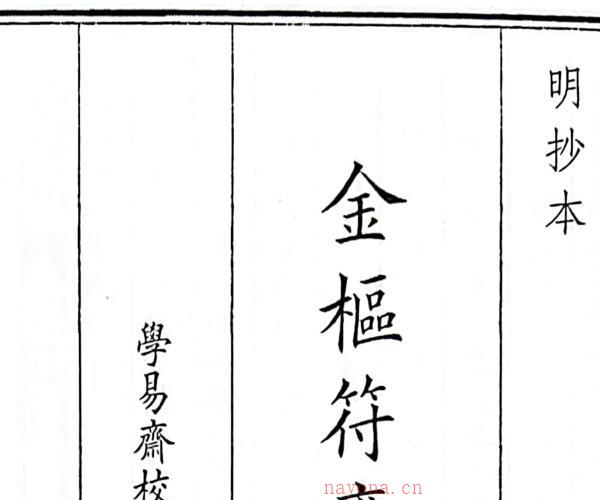 明抄本
金樞符
學易齋校
nayona.cn